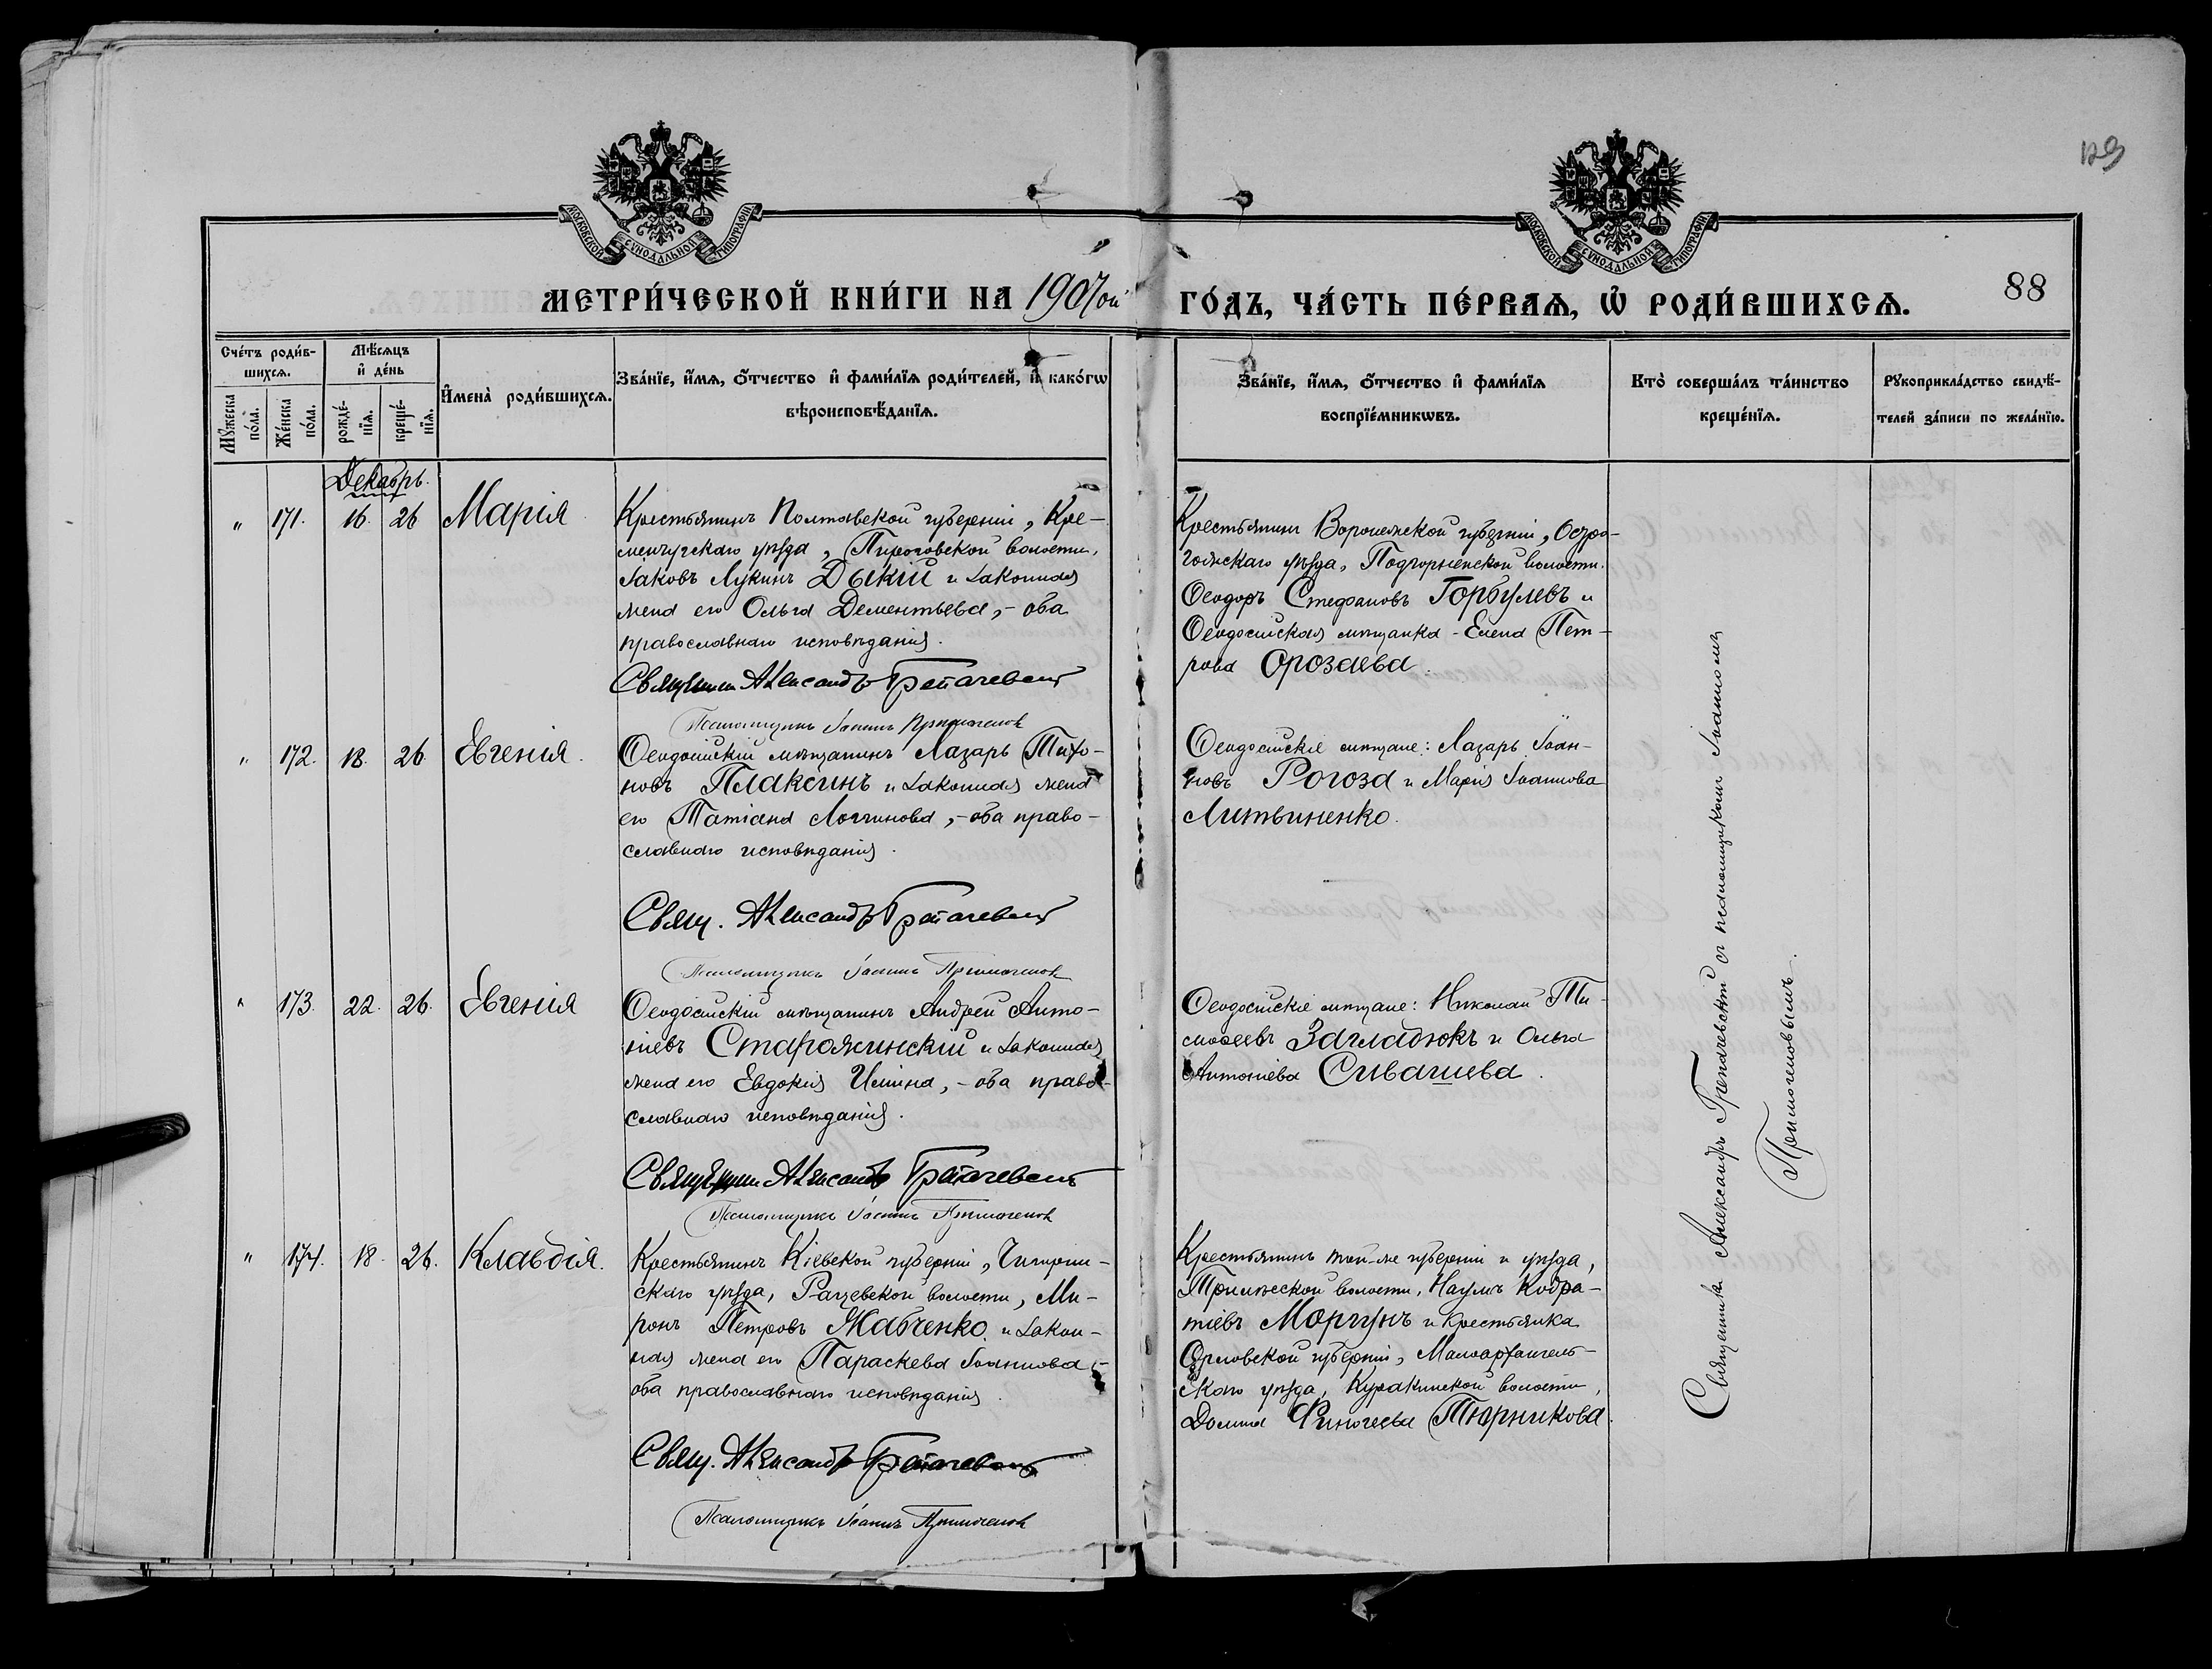 129
МОСКОВСКОЙ СѴНОДАЛЬНОЙ ТИПОГРАФІИ
МОСКОВСКОЙ СѴНОДАЛЬНОЙ ТИПОГРАФІИ
МЕТРИ́ЧЕСКОЙ КНИ́ГИ НА 1907ой ГО́ДЪ, ЧА́СТЬ ПЕ́РВАѦ, Ѡ РОДИ́ВШИХСѦ.
88
Сче́тъ роди́в-
шихсѧ.
Мѣ́сѧцъ
и҆ де́нь
Мꙋ́жеска по́ла.
Же́нска по́ла.
рожде́-
нїѧ.
креще́-
нїѧ.
И҆мена̀ роди́вшихсѧ.
Зва́нїе, и҆́мѧ, ѻ҆́тчество и҆ фами́лїѧ роди́телей, и҆ како́гѡ
вѣроисповѣ́данїѧ.
Зва́нїе, и҆́мѧ, ѻ҆́тчество и҆ фами́лїѧ
воспрїе́мникѡвъ.
Кто̀ соверша́лъ та́инство
креще́нїѧ.
Рꙋкоприкла́дство свидѣ́-
телей за́писи по жела́нїю.
Декабрь.
" 171. 16. 26 Марія
Крестьянинъ Полтавской губерніи, Кре-
менчугскаго уѣзда, Пироговской волости,
Іаковъ Лукинъ Дыкій и законная
жена его Ольга Дементьева, - оба
православнаго исповѣданія.
Священникъ Александръ Трепачевскій
Псаломщикъ Іоаннъ Примогеновъ
Крестьянинъ Воронежской губерніи, Остро-
гожскаго уѣзда, Подгорненской волости
Ѳеодоръ Стефановъ Горбулевъ и
Ѳеодосійская мѣщанка - Елена Пет-
рова Орозаева.
" 172. 18. 26. Евгенія.
Ѳеодосійскій мѣщанинъ Лазарь Тихо-
новъ Плаксинъ и законная жена
его Татіана Логгинова, - оба право-
славнаго исповѣданія.
Свящ. Александръ Трепачевскій
Псаломщикъ Іоаннъ Примогеновъ
Ѳеодосійскіе мѣщане: Лазарь Іоан-
новъ Рогоза и Марія Іоаннова
Литвиненко.
" 173. 22. 26. Евгенія
Ѳеодосійскій мѣщанинъ Андрей Анто-
ніевъ Старожинскій и законная
жена его Евдокія Ильина, - оба право-
славнаго исповѣданія.
Священникъ Александръ Трепачевскій
Псаломщикъ Іоаннъ Примогеновъ
Ѳеодосійскіе мѣщане: Николай Ти-
моѳеевъ Загладюкъ и Ольга
Антоніева Сивашева.
" 174. 18. 26. Клавдія.
Крестьянинъ Кіевской губерніи, Чигирин-
скаго уѣзда, Рацевской волости, Ми-
ронъ Петровъ Жабченко и закон-
ная жена его Параскева Іоаннова, -
оба православнаго исповѣданія.
Свящ. Александръ Трепачевскій
Псаломщикъ Іоаннъ Примогеновъ
Крестьянинъ той-же губерніи и уѣзда,
волости, Наумъ Кодра-
тіевъ Моргунъ и крестьянка
Орловской губерніи, Малоархангель-
скаго уѣзда, Куракинской волости,
Домна Финогеева Тюрникова.
Священникъ Александръ Трепачевскій съ псаломщикомъ Іоанномъ
Примогеновымъ.